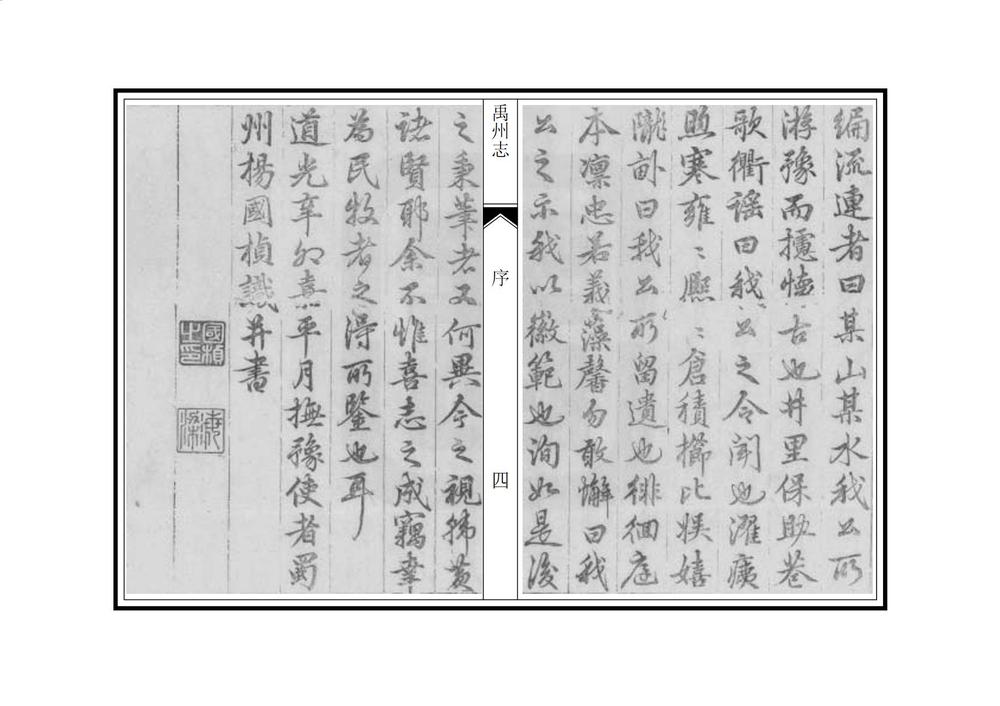 編流連者曰某山某水我公所
游豫而攄懷古也井里保助巷
歌衢謡曰我公之令聞也濯痍
煦寒雍〻熙〻倉積櫛比娱嬉
隴畝曰我公所留遺也徘徊庭
本凛忠若義藻馨勿敢懈曰我
公之示我以徽範也洵如是後
禹州志
序
四
之秉筆者又何異今之視韩黄
諸賢耶余不惟喜志之成竊幸
為民牧者之得所鑒也耳
道光辛卯嘉平月撫豫使者蜀
州楊國楨識并書
國楨之印
海梁